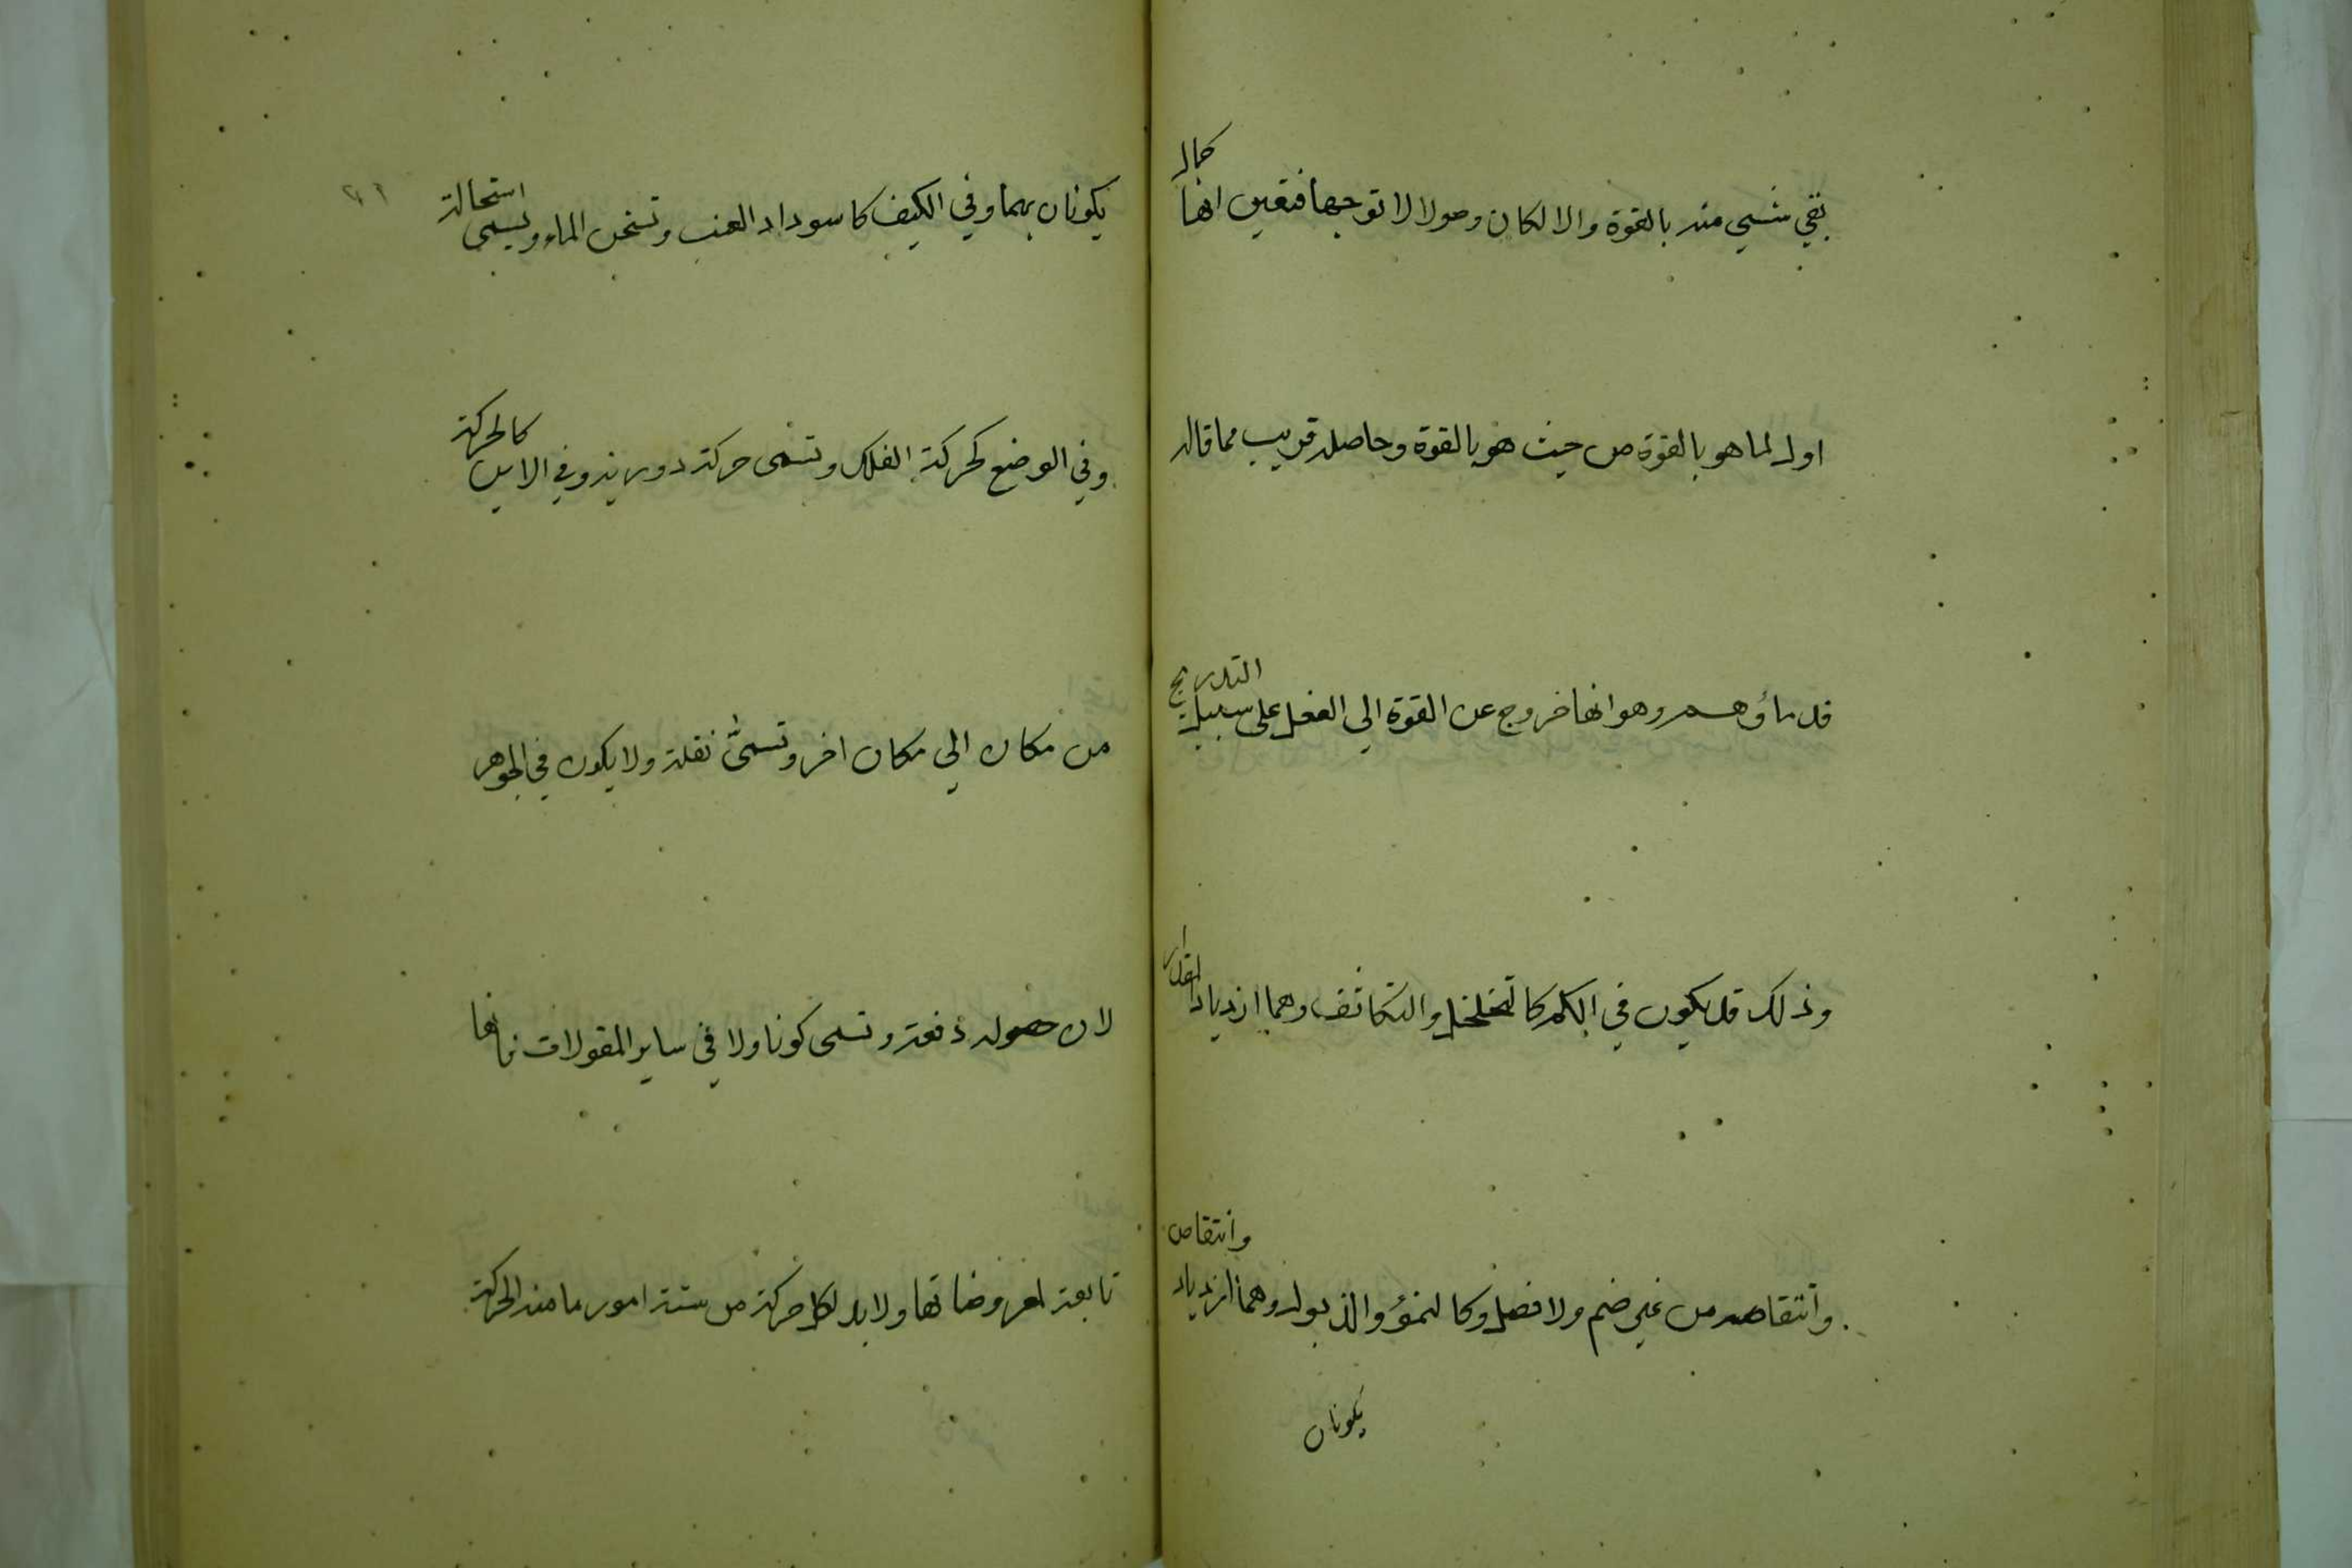 بقي شيي منه بالقوة والا لكان وصولا لا توجها فتعين انها كمال
اول لما هو بالقوة من حيث هو بالقوة وحاصله قريب مما قاله
قدماؤهم وهو انها خروج عن القوة الي الفعل على سبيل التدريج
وذلك قد يكون في الكم كالتخلخل والتكاثف وهما ازدياد المقدار
وانتقاصه من غير ضم ولا فصل وكالنمؤ والذبول وهما ازدياد وانتقاص
يكونان
٤١
يكونان بهما وفي الكيف كاسوداد العنب وتسخن الماء ويسمى استحالة
وفي الوضع كحركة الفلك وتسمى حركة دورية وفي الاين كالحركة
من مكان الي مكان اخر وتسمى نقلة ولا يكون في الجوهر
لان حصوله دفعة وتسمى كونا ولا في ساير المقولات فانها
تابعة لمعروضاتها ولا بد لكل حركة من ستة امور ما منه الحركة